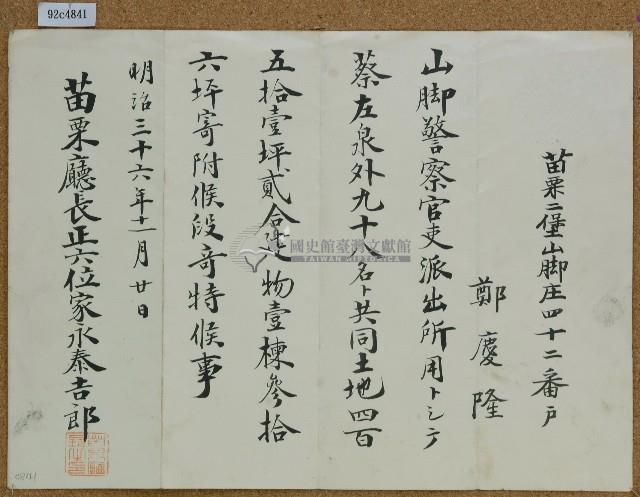 92c4841
苗栗二堡山脚庄四十二番戶
鄭慶隆
山脚警察官吏派出所用トシテ
蔡左泉外九十八名ト共同土地四百
五拾壹坪貳合建物壹棟參拾
六坪寄附候段奇特候事
明治三十六年十一月廿日
苗栗廳長正六位家永泰吉郎
國史館臺灣文獻館
TAIWAN HISTORICA